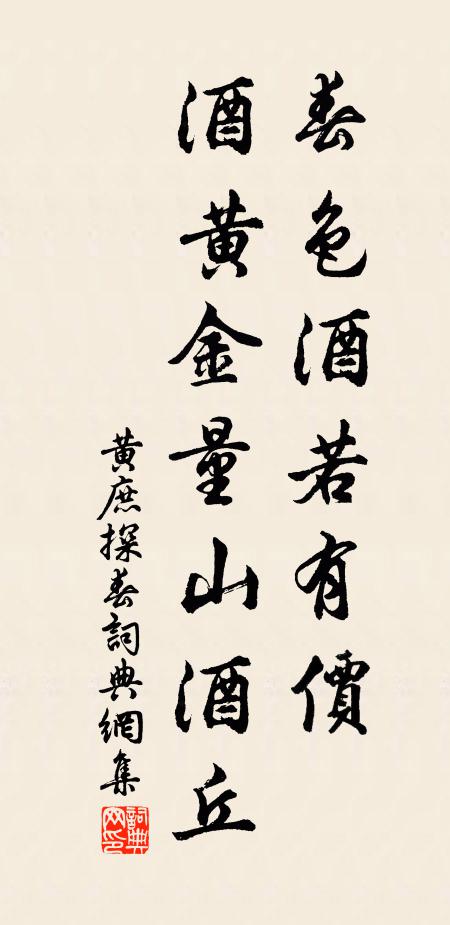 春色酒若有價
酒黃金量山酒丘
黃庶探春詞典網集
詞典網印